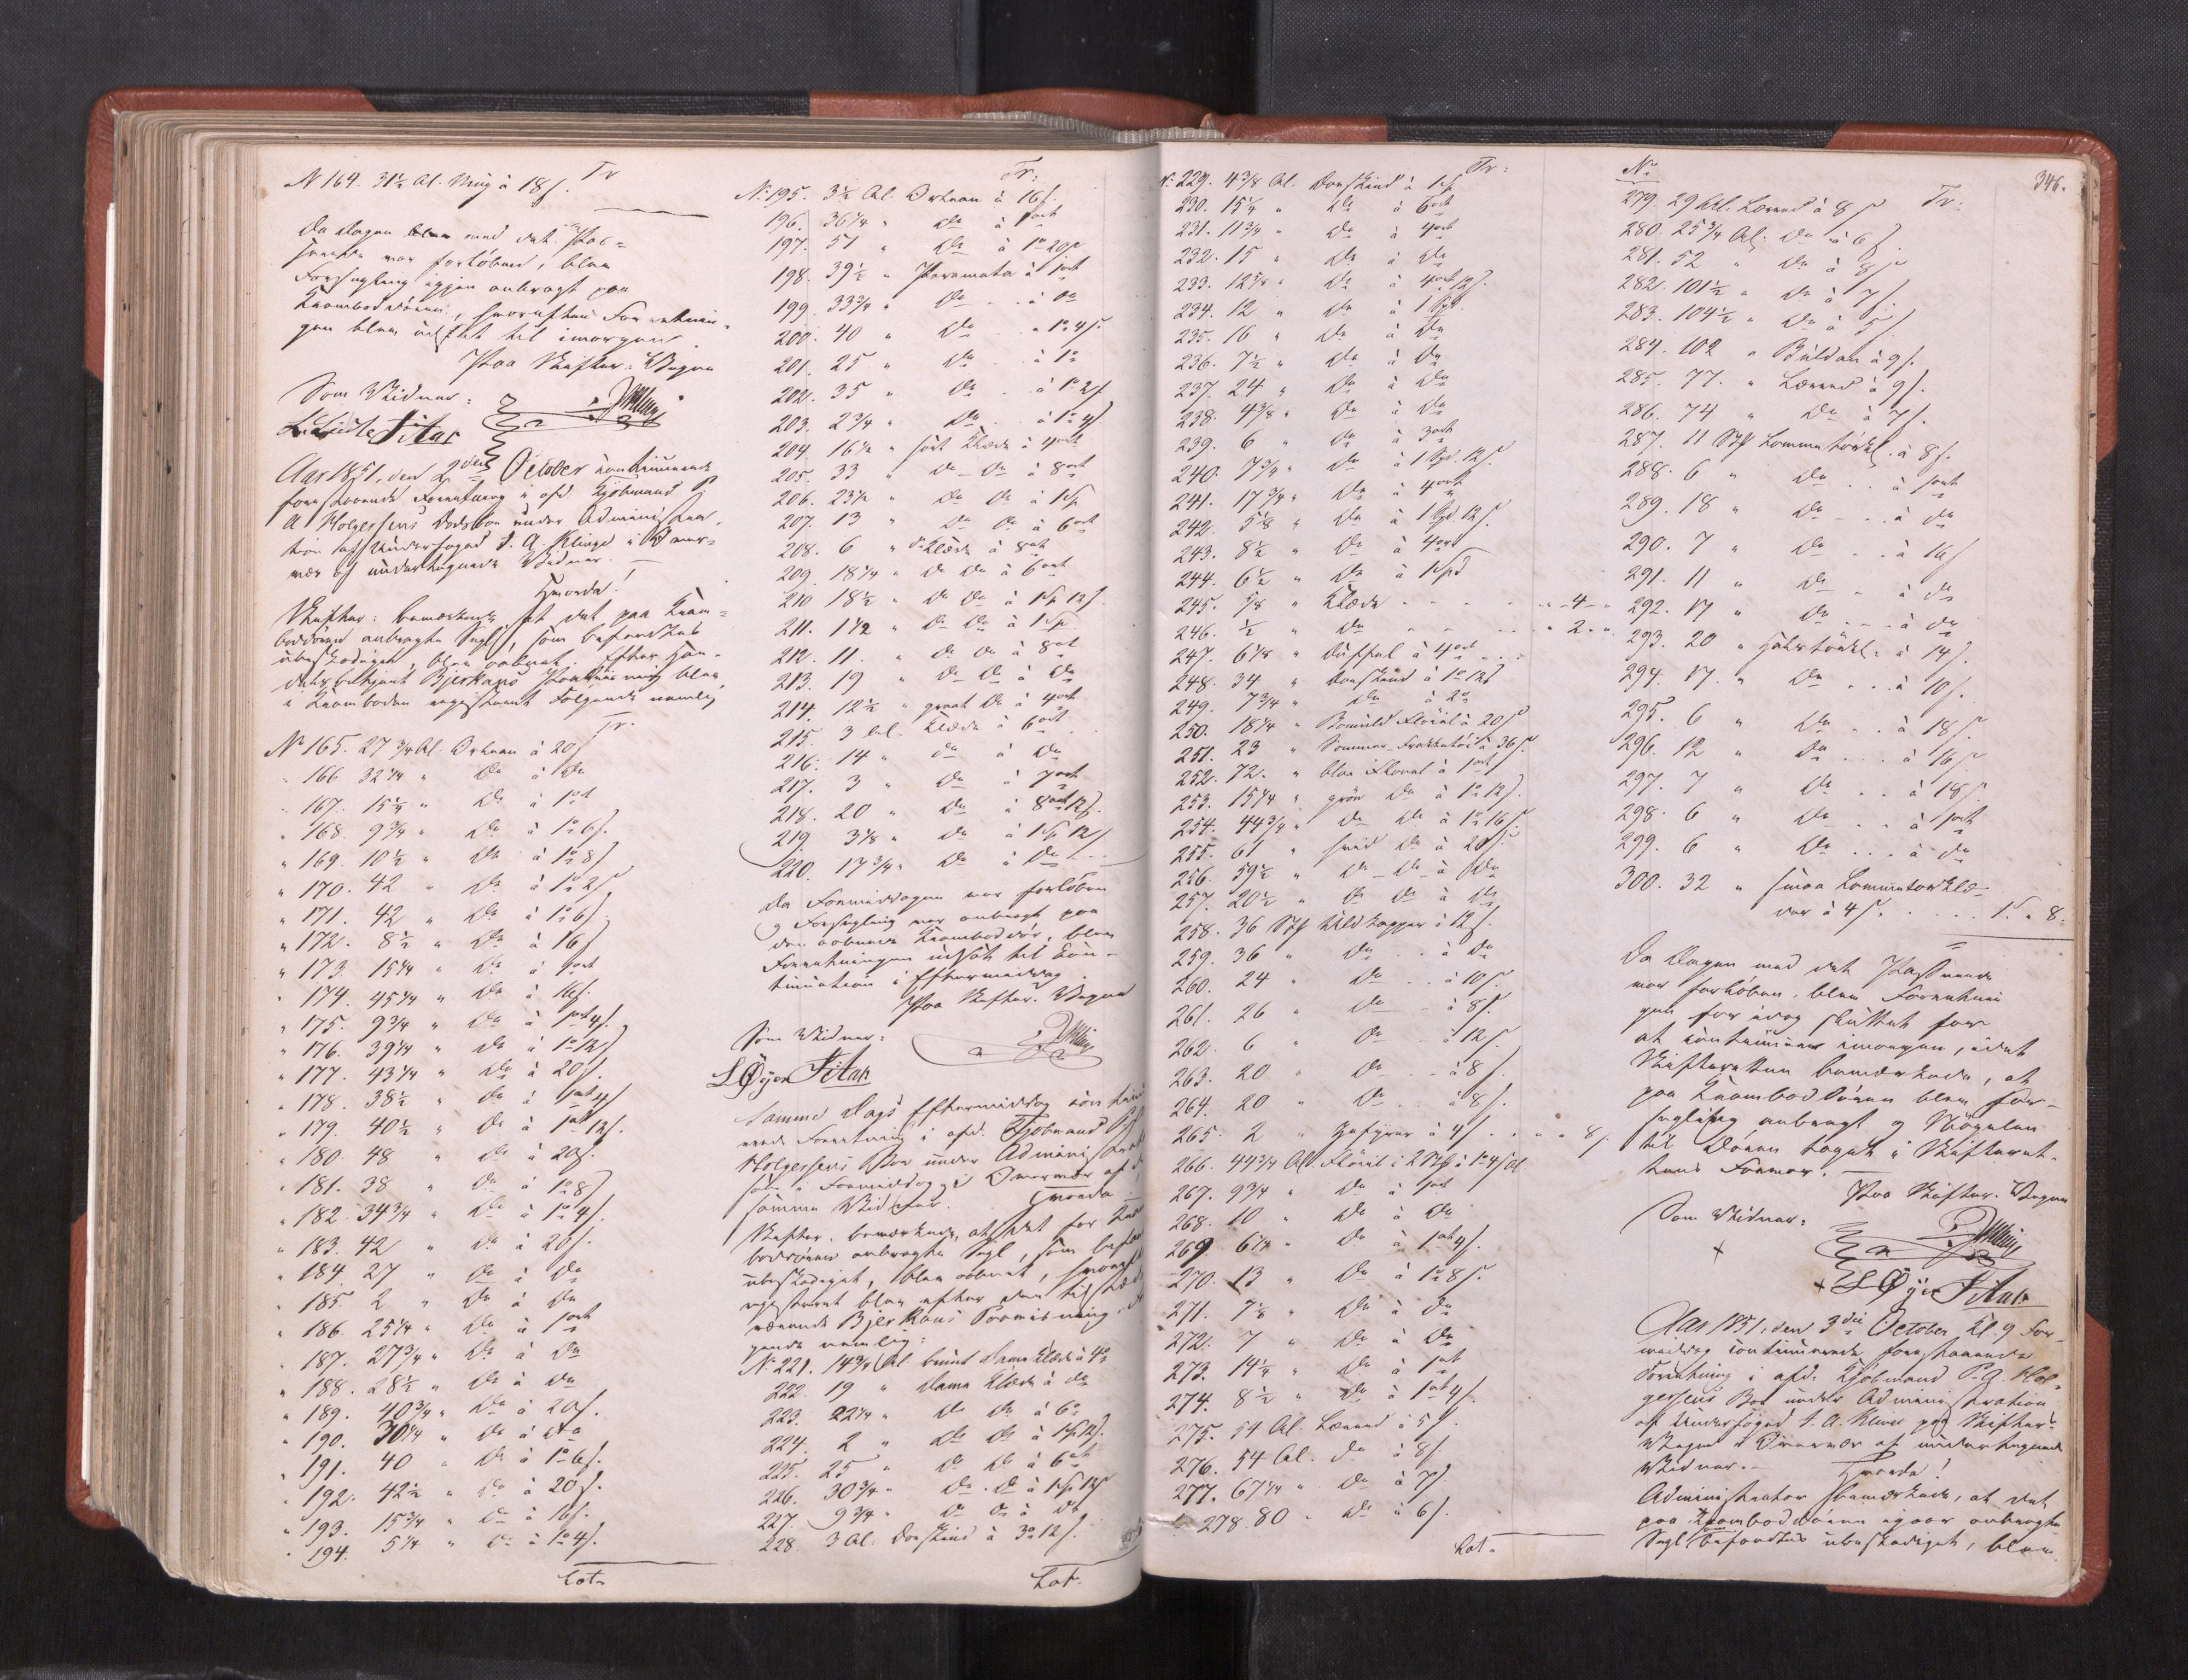 Tr
N 164. 31½ Al. Müg à 18 s.
Da Dagen blev med det Pas-
serede var forløben, blev
Forsegling igjen anbragt paa
Krambod døren, hvorefter Forretnin-
gen blev udsat til imorgen.
Paa Skifter: Vegne
Som Vidner:
Aar 1851, den 2den October continuerede
forestaaende Forretning i afd. Kjøbmand P
A Holgersens Dodsboe under Administra-
tion af
nær af undertegnede Vidner.
Hvorda!
Skifter: bemærkede at det paa Kram-
boddøren anbragte Segl, som befandtes
ubeskadiget, blev aabnet. Efter Han-
delsbetjent Bjerkaas Paaviisning blev
i Kramboden registreret Følgende nemlig
Tr.
No 165. 27 3/4 Al. Orlean à 20 s
" 166 32 1/4 " Do à Do
" 167. 15½ " Do à 1 ort
" 168. 9 3/4 " Do à 1o 6 s.
" 169. 10½ " Do à 1o 8 s
" 170. 42 " Do à 1o 2 s
" 171. 42 " Do à 1o 6 s.
" 172. 8½ " Do à 16 s
" 173. 15 1/4 " Do à 1 ort
" 174. 45 1/4 " Do à 16 s.
" 175. 9 3/4 " Do à 1 ort 4 s.
" 176. 39 1/4 " Do à 1o 12 s
" 177. 43 1/4 " Do à 20 s.
" 178. 38½ " Do à 1 ort 4 s
" 179. 40½ " Do à 1 ort 12 s.
" 180. 48 " Do à 20 s.
" 181. 38 " Do à 1o 8 s
" 182. 34 3/4 " Do à 1o 4 s.
" 183. 42 " Do à 20 s.
" 184. 27 " Do à Do
" 185. 2 " Do à Do
" 186. 25 1/4 " Do à 1 ort
" 187. 27 3/4 " Do à Do
" 188. 28½ " Do à Do
" 189. 40 3/4 " Do à 20 s.
" 190. 30 1/4 " Do à Do
" 191. 40 " Do à 1o 6 s.
" 192. 42½ " Do à 20 s.
" 193. 15 3/4 " Do à 16 s.
" 194. 5 1/4 " Do à 1o 4 s.
Lat.
Tr:
No 195. 3½ Al. Orlean à 16 s.
196. 36 1/4 " Do à 1 ort
197. 51 " Do à 1o 20 s
198. 39½ " Paramata à 1 ort
199. 33 3/4 " Do . . à Do
200. 40 " Do . . " 1o 4 s.
201. 25 " Do . à 1o
202. 35 " Do . à 1o 2 s
203. 2 3/4 " Do . à 1o 4 s
204. 16½ " sort Klæde à 4 ort
205. 33 " Do Do à 8 ort
206. 23½ " Do Do à 1 Sp
207. 13 " Do Do à 6 ort
208. 6 " Do Klæde à 8 ort
209. 18 1/4 " Do Do à 6 ort
210. 18½ " Do Do à 1 Sp 12 s.
211. 1½ " Do Do à 1 Sp.
212. 11. " Do Do à 8 ort
213. 19 " Do Do à Do
214. 12½ " graat Do à 4 ort
215. 3 Al. Klæde à 6 ort
216. 14 " Do à Do
217. 3 " Do à 7 ort
218. 20 " Do à 8 ort 12 s.
219. 3 1/8 " Do à 1 Sp 12 s
220. 17 3/4 " Do à Do
Da Formiddagen var forløben
og Forsegling var anbragt paa
den aabnede Kramboddør, blev
Forretningen udsat til Con-
tinuation i Eftermiddag.
Paa Skifter. Vegne
Som Vidner:
L Øyen
Samme Dags Eftermiddag
nuede Forretning i afd. Kjøbmand P
Holgersens Boe under
som i Formiddag
samme Vidner. Hvorda
Skifter. bemærkede, at det for
boddøren anbragte Segl, som
ubeskadiget, blev aabnet,
registreret blev efter den
værende Bjerkaas Paavisning
gende nemlig:
No 221. 14 3/4 Al bruunt Dame Klæde à 4o
222. 19 " Dame Klæde à Do
223. 22 1/4 " Do Do à 6o
224. 2 " Do Do à 1 Sp 12 s.
225. 25 " Do Do à 6 ort
226. 30 3/4 " Do Do à 1 Sp 12 s
227. 9 3/4 " Do Do à Do
228. 3 Al: Doeskind à 3o 12 s.
Lat.
Tr:
No 229. 4 3/8 Al. Doeskind à 1 Sp
230. 15½ " Do à 6 ort
231. 11 3/4 " Do à 4 ort
232. 15 " Do à Do
233. 12 3/4 " Do à 4 ort 12 s.
234. 12 " Do à 1 Spd.
235. 16 " Do à Do
236. 7½ " Do à Do
237. 24 " Do à Do
238. 4 3/8 " Do à Do
239. 6 " Do à 3 ort
240. 7 3/4 " Do à 1 Spd. 12 s.
241. 17 3/4 " Do à 4 ort
242. 5 1/8 " Do à 1 Spd 12 s.
243. 8½ " Do à 4 ort
244. 6½ " Do à 1 Spd
245. 7/8 " Klæde - - - - " - 4 - "
246. ½ " Do - - - - " 2 - "
247. 6 1/8 " Düffel à 4 ort
248. 34 " Doeskind à 1o 12 s
249. 7 3/4 " Do à 2o
250. 18 1/4 " Bomuld Fløiel à 20 s
251. 23 " Sommer-Frakketøi à 36 s.
252. 72. " blaa Flonel à 1 ort
253. 15 1/4 " grøn Do à 1o 12 s.
254. 44 3/4 " Do Do à 1o 16 s.
255. 61 " hvid Do à 20 s.
256. 59½ " Do Do à Do
257. 20½ " Do Do à Do
258. 36 Stk Uldkapper à 12 s.
259. 36 " Do . . à Do
260. 24 " Do . . à 10 s.
261. 26 " Do - à 8 s.
262. 6 " Do - à 12 s
263. 20 " Do - à 8 s.
264. 20 " Do . . à 8 s.
265. 2 " à 4 s. . . " " 8 s.
266. 44 3/4 Al. Fløiel i 2 Stk à 1o 4 s Al
267. 9 3/4 " Do à 1 ort
268. 10 " Do à Do
269. 6 1/4 " Do à 1 ort 4 s.
270. 13 " Do à 1o 8 s.
271. 7 1/8 " Do à Do
272. 7 " Do à Do
273. 14½ " Do à 1 ort
274. 8½ " Do à 1 ort 4 s.
275. 54 Al. Lærred à 5 s.
276. 54 Al. Do à 8 s.
277. 67 1/4 " Do à 7 s.
278. 80 " Do à 6 s.
Lat.
346.
No
Tr:
279. 29 Al. Lærred à 8 s
280. 25 3/4 Al. Do à 6 s.
281. 52 " Do à 8 s
282. 101½ " Do à 7 s.
283. 104½ " Do à 5 s
284. 102 " Büldan à 9 s.
285. 77. " Lærred à 9 s.
286. 74 " Do à 7 s.
287. 11 Stk Lommetörkl. à 8 s.
288. 6 " Do . . à 1 ort
289. 18 " Do - - . à Do
290. 7 " Do . . à 16 s
291. 11 " Do - à Do
292. 17 " Do . . . à Do
293. 20 " Halstörkl: à 14 s.
294. 17. " Do . . . à 10 s.
295. 6 " Do . . à 18 s.
296. 12 " Do . . . à 16 s.
297. 7 " Do . . à 18 s.
298. 6 " Do . . à 1 ort
299. 6 " Do . . . à Do
300. 32 " smaa Lommetörklæ-
der à 4 s. . . . . 1. " 8.
Da Dagen med det Passerede
var forløben, blev Forretnin
gen for idag sluttet for
at continueres imorgen, idet
Skifteretten bemærkede, at
paa Kramboddøren blev For-
segling anbragt og Nøgelen
til Døren taget i Skifteret-
tens Forvar.
Paa Skifter. Vegne
Som Vidner:
L Øyen
Aar 1851, den 3die October Kl. 9 For-
middag continuerede forestaaende
Forretning i afd. Kjöbmand P. A. Hol-
gersens Boe under Administration
af paa Skifter:
Vegne i Overvær af undertegnede
Vidner. - Hvorda!
Administrator bemærkede, at det
paa Kramboddøren igaar anbragte
Segl befandtes ubeskadiget, blev